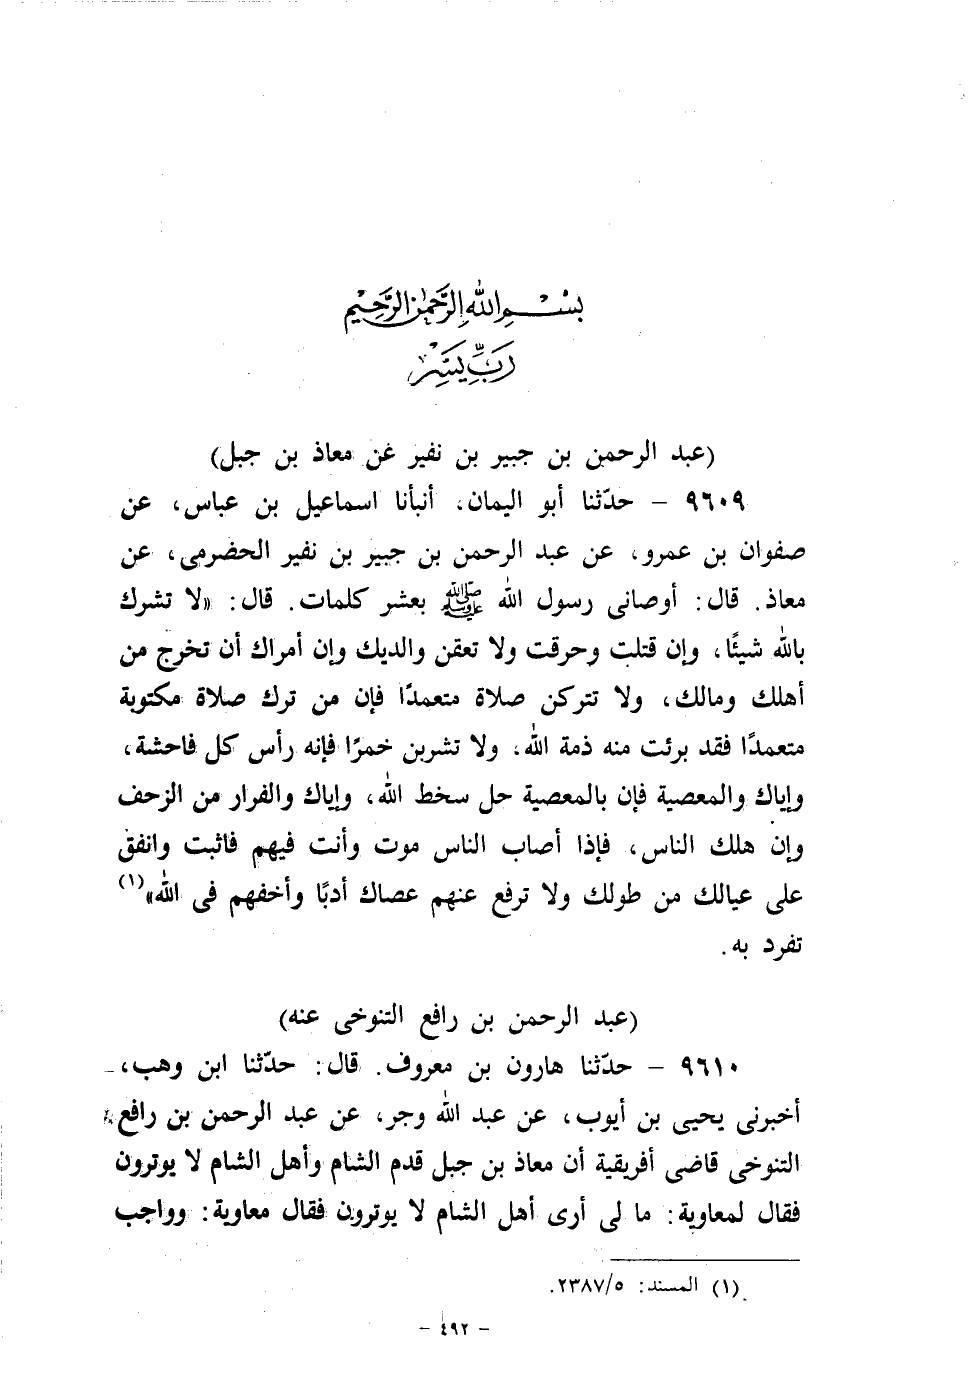 بسم الله الرحمن الرحيم
رب يسر
(عبد الرحمن بن جبير بن نفير عن معاذ بن جبل)
٩٦٠٩ - حدّثنا أبو اليمان، أنبأنا اسماعيل بن عباس، عن
صفوان بن عمرو، عن عبد الرحمن بن جبير بن نفير الحضرمى، عن
معاذ. قال: أوصانى رسول الله ﷺ بعشر كلمات. قال: «لا تشرك
بالله شيئًا، وإن قتلت وحرقت ولا تعقن والديك وإن أمراك أن تخرج من
أهلك ومالك، ولا تتركن صلاة متعمدًا فإن من ترك صلاة مكتوبة
متعمدًا فقد برئت منه ذمة الله، ولا تشربن خمرًا فإنه رأس كل فاحشة،
وإياك والمعصية فإن بالمعصية حل سخط الله، وإياك والفرار من الزحف
وإن هلك الناس، فإذا أصاب الناس موت وأنت فيهم فاثبت وانفق
على عيالك من طولك ولا ترفع عنهم عصاك أدبًا وأخفهم فى الله»(١)
تفرد به.
(عبد الرحمن بن رافع التنوخى عنه)
٩٦١٠ - حدّثنا هارون بن معروف. قال: حدّثنا ابن وهب،
أخبرنى يحيى بن أيوب، عن عبد الله وجر، عن عبد الرحمن بن رافع
التنوخى قاضى أفريقية أن معاذ بن جبل قدم الشام وأهل الشام لا يوترون
فقال لمعاوية: ما لى أرى أهل الشام لا يوترون فقال معاوية: وواجب
(١) المسند: ٢٣٨٧/٥.
- ٤٩٢ -